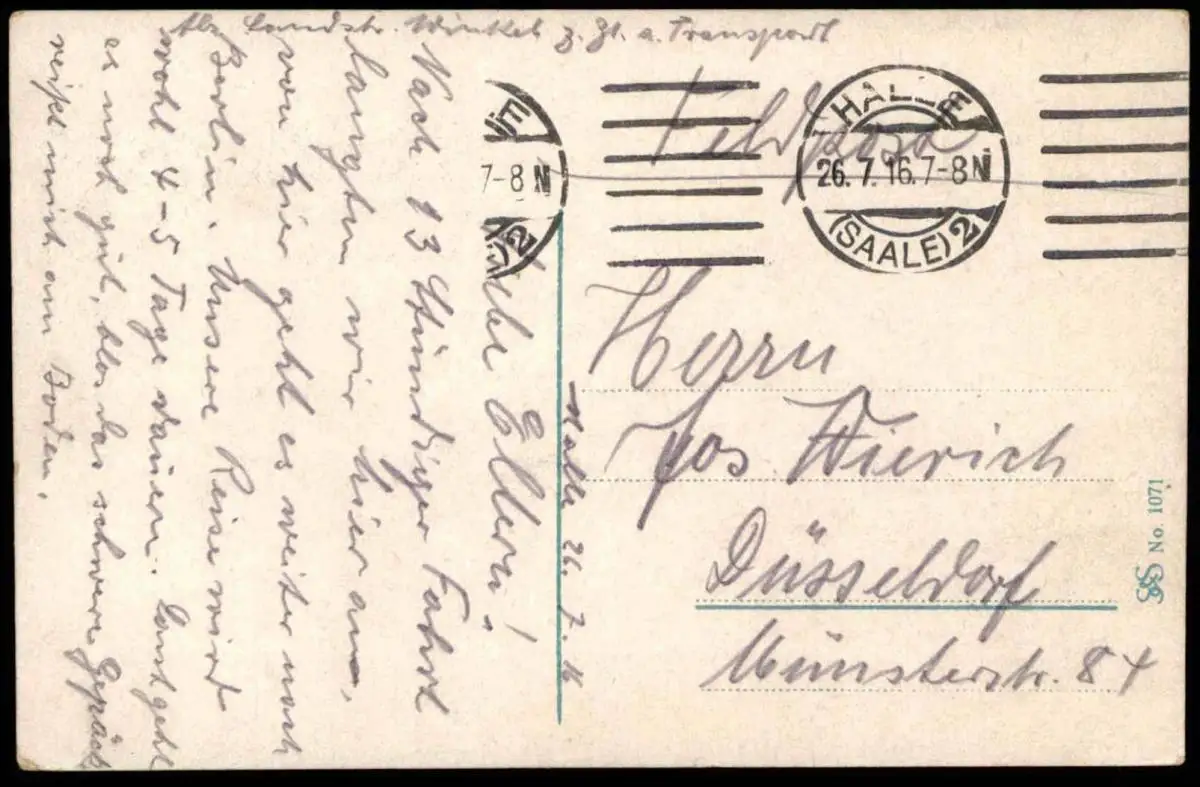 Abs. Landstr. Winkel z. Zt. a. Transport
Feldpost
HALLE
26. 7. 16. 7-8 N
(SAALE) 2
E
7-8 N
2
Halle 26. 7. 16
Liebe Eltern!
Nach 13 Stündiger Fahrt
langten wir hier an,
von hier geht es weiter nach
Berlin. Unsere Reise wird
wohl 4-5 Tage dauern. Sonst geht
es noch gut, blos das schwere Gepäck
reißt mich am Boden.
Herrn
Jos
Düsseldorf
Münsterstr. 84
S&S No. 1071